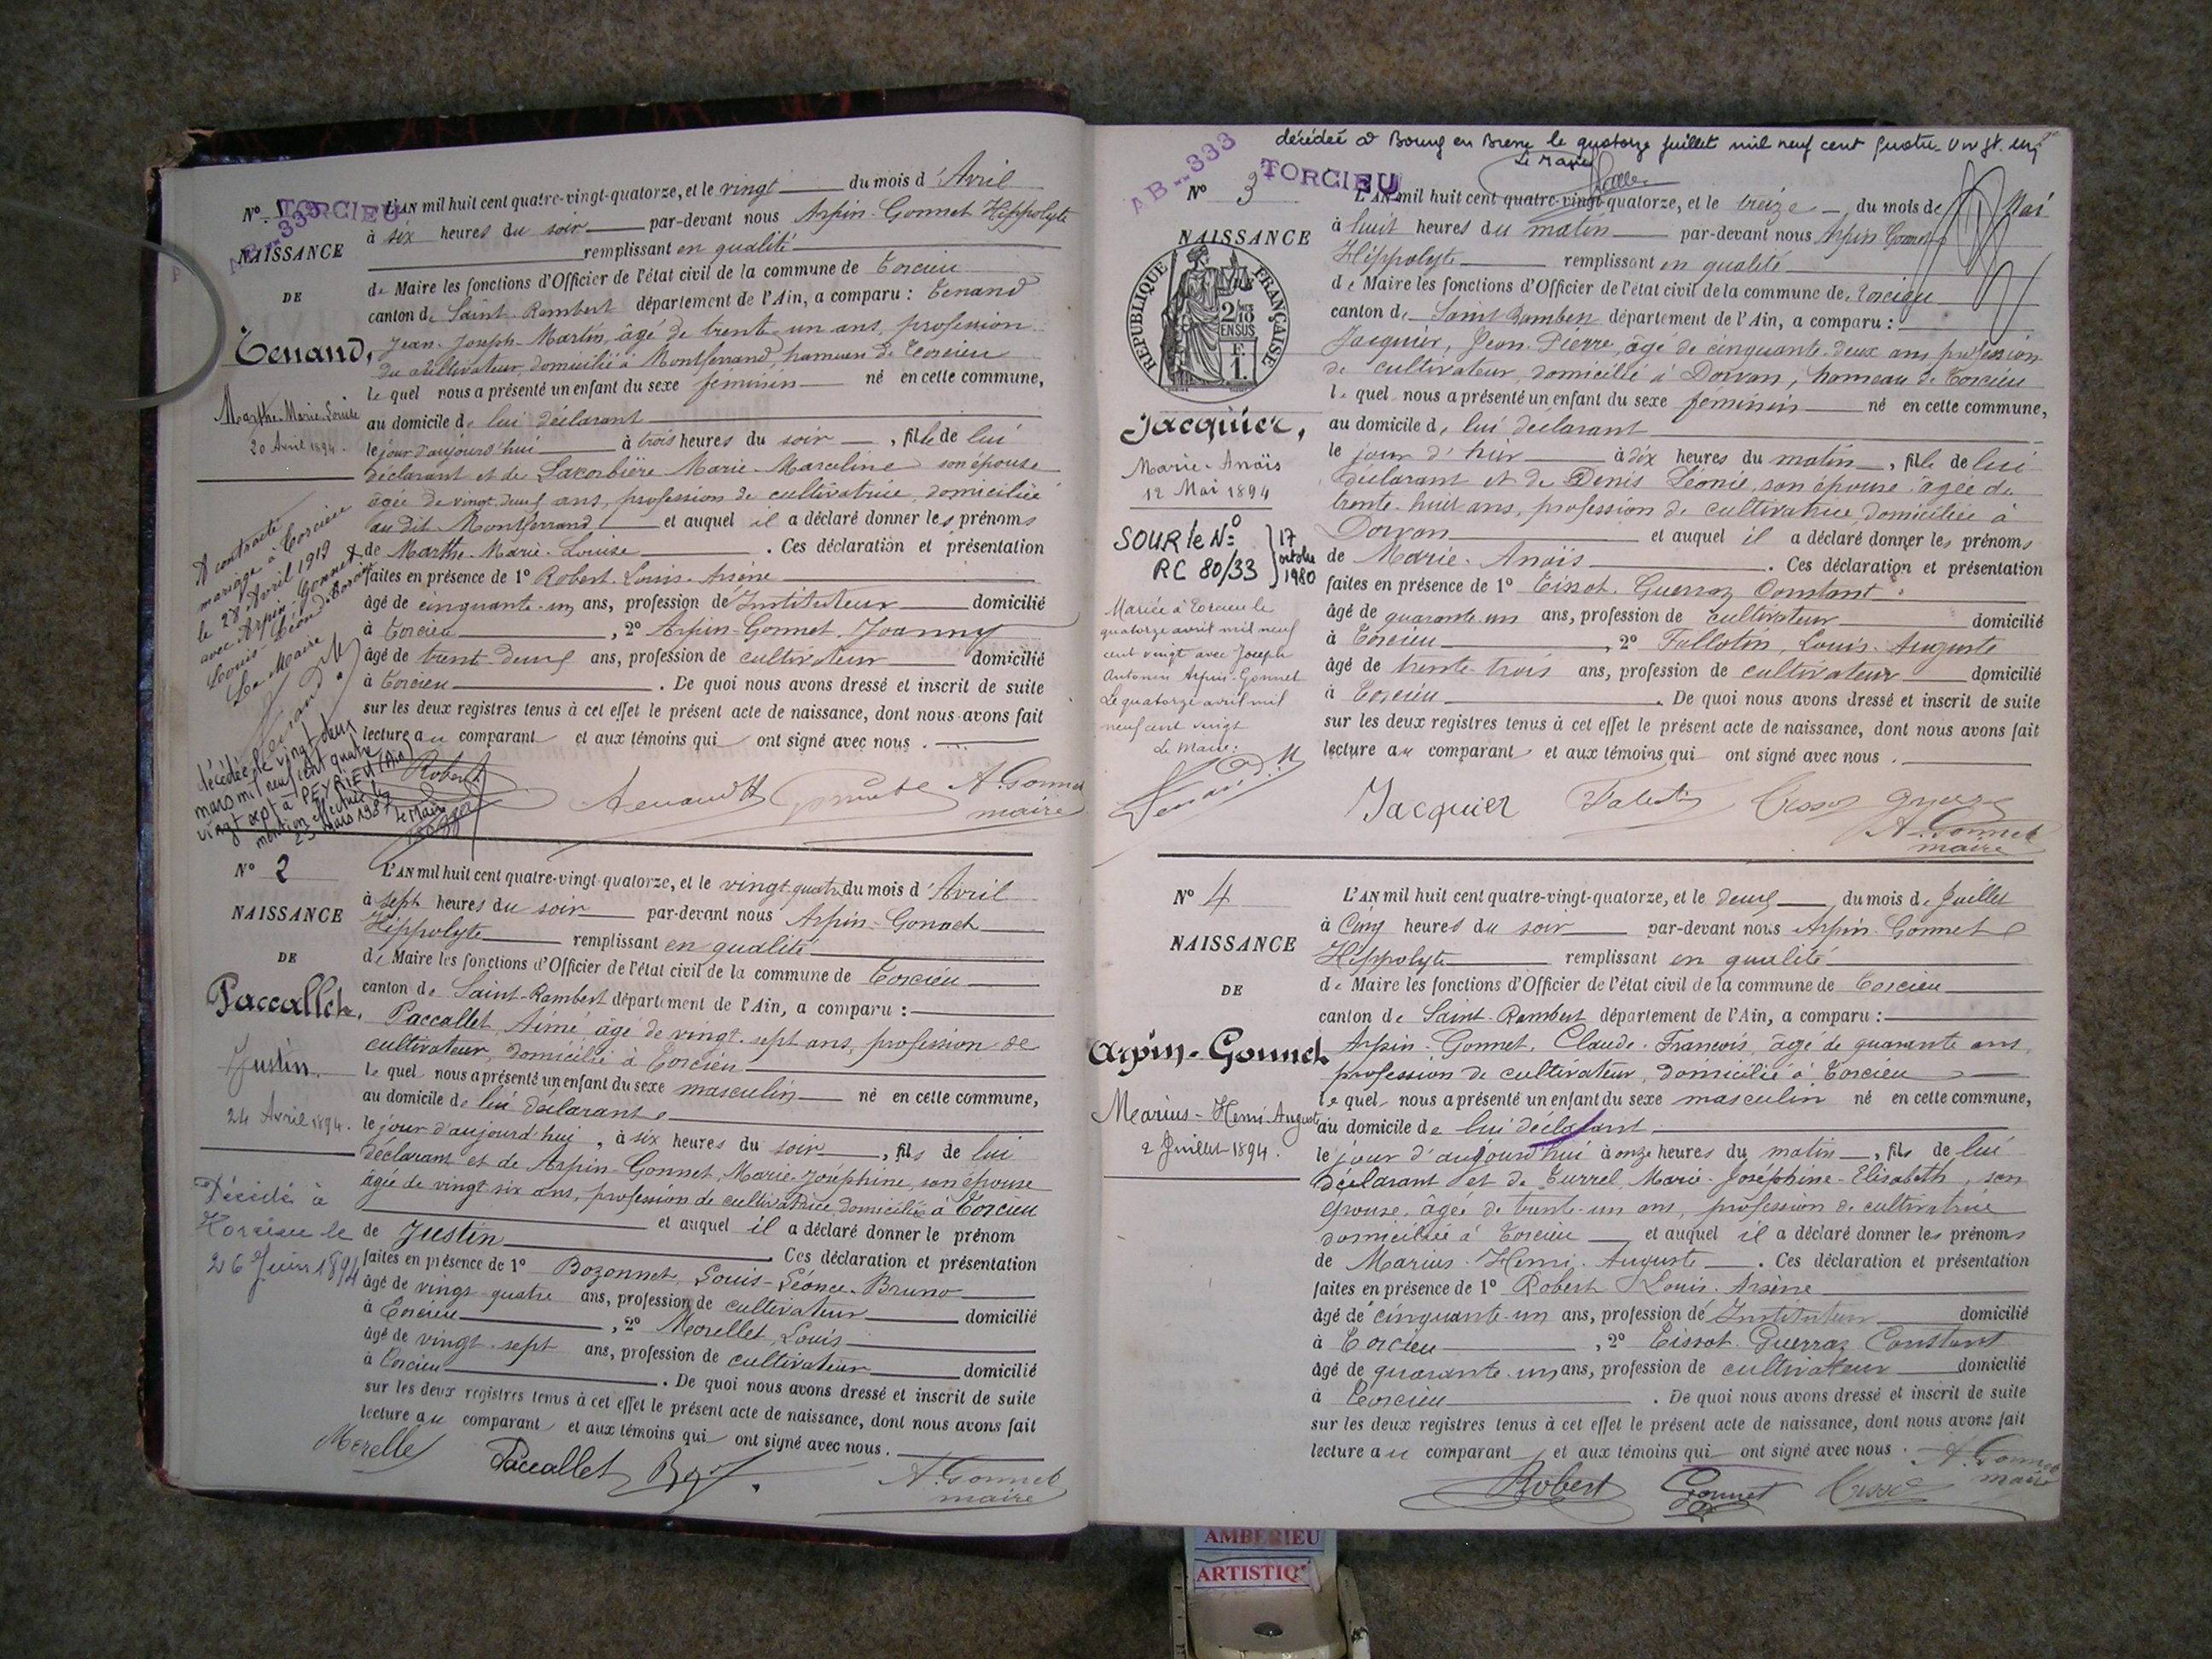 TORCIEU
AB..333
N° 1
NAISSANCE
DE
Tenand,
Marthe-Marie-Louise
20 Avril 1894.
A contracté
mariage à Torcieu
le 28 Avril 1919
avec Arpin-Gonnet
Louis-Léon à Torcieu
Le Maire
décédée le vingt deux
mars mil neuf cent quatre
vingt sept à PEYRIEU (Ain)
mention effectuée le
23 mars 1987
le Maire
L'AN mil huit cent quatre-vingt-quatorze, et le vingt du mois d'Avril
à six heures du soir par-devant nous Arpin-Gonnet Hippolyte
remplissant en qualité
de Maire les fonctions d'Officier de l'état civil de la commune de Torcieu
canton de Saint-Rambert département de l'Ain, a comparu : Tenand
Jean-Joseph-Martin, âgé de trente-un ans, profession
de cultivateur, domicilié à Montferrand hameau de Torcieu
lequel nous a présenté un enfant du sexe féminin né en cette commune,
au domicile de lui déclarant
le jour d'aujourd'hui à trois heures du soir, fille de lui
déclarant et de Lacorbière Marie-Marceline son épouse
âgée de vingt-neuf ans, profession de cultivatrice, domiciliée
au dit Montferrand et auquel il a déclaré donner les prénoms
de Marthe-Marie-Louise. Ces déclaration et présentation
faites en présence de 1° Robert-Louis-Arsène
âgé de cinquante-un ans, profession d'Instituteur domicilié
à Torcieu, 2° Arpin-Gonnet, Joanny
âgé de trente-deux ans, profession de cultivateur domicilié
à Torcieu. De quoi nous avons dressé et inscrit de suite
sur les deux registres tenus à cet effet le présent acte de naissance, dont nous avons fait
lecture au comparant et aux témoins qui ont signé avec nous.
Robert Tenand A. Gonnet
maire
N° 2
NAISSANCE
DE
Paccallet,
Justin
24 Avril 1894.
Décédé à
Torcieu le
26 Juin 1894
L'AN mil huit cent quatre-vingt-quatorze, et le vingt-quatre du mois d'Avril
à sept heures du soir par-devant nous Arpin-Gonnet
Hippolyte remplissant en qualité
de Maire les fonctions d'Officier de l'état civil de la commune de Torcieu
canton de Saint-Rambert département de l'Ain, a comparu :
Paccallet, Aimé âgé de vingt-sept ans, profession de
cultivateur, domicilié à Torcieu
lequel nous a présenté un enfant du sexe masculin né en cette commune,
au domicile de lui déclarant
le jour d'aujourd'hui, à six heures du soir, fils de lui
déclarant et de Arpin-Gonnet, Marie-Joséphine, son épouse
âgée de vingt-six ans, profession de cultivatrice, domiciliée à Torcieu
et auquel il a déclaré donner le prénom
de Justin. Ces déclaration et présentation
faites en présence de 1° Bozonnet, Louis-Léonce-Bruno
âgé de vingt-quatre ans, profession de cultivateur domicilié
à Torcieu, 2° Morellet, Louis
âgé de vingt-sept ans, profession de cultivateur domicilié
à Torcieu. De quoi nous avons dressé et inscrit de suite
sur les deux registres tenus à cet effet le présent acte de naissance, dont nous avons fait
lecture au comparant et aux témoins qui ont signé avec nous.
Morellet Paccallet A. Gonnet
maire
décédée à Bourg en Bresse le quatorze juillet mil neuf cent quatre-vingt-un
Le Maire
AB..333
TORCIEU
N° 3
NAISSANCE
RÉPUBLIQUE FRANÇAISE
2/10 EN SUS
F. 1.
Jacquier,
Marie-Anaïs
12 Mai 1894
SOURIE N°
RC 80/33
17
octobre
1980
Mariée à Torcieu le
quatorze avril mil neuf
cent vingt avec Joseph
Antonin Arpin-Gonnet
Le quatorze avril mil
neuf cent vingt
Le Maire :
L'AN mil huit cent quatre-vingt-quatorze, et le treize du mois de Mai
à huit heures du matin par-devant nous Arpin-Gonnet
Hippolyte remplissant en qualité
de Maire les fonctions d'Officier de l'état civil de la commune de Torcieu
canton de Saint-Rambert département de l'Ain, a comparu :
Jacquier, Jean-Pierre, âgé de cinquante-deux ans profession
de cultivateur, domicilié à Dorvan, hameau de Torcieu
lequel nous a présenté un enfant du sexe féminin né en cette commune,
au domicile de lui déclarant
le jour d'hier à dix heures du matin, fille de lui
déclarant et de Denis Léonie, son épouse, âgée de
trente-huit ans, profession de cultivatrice, domiciliée à
Dorvan et auquel il a déclaré donner les prénoms
de Marie-Anaïs. Ces déclaration et présentation
faites en présence de 1° Tissot-Guerraz Constant
âgé de quarante-un ans, profession de cultivateur domicilié
à Torcieu, 2° Falloton, Louis-Auguste
âgé de trente-trois ans, profession de cultivateur domicilié
à Torcieu. De quoi nous avons dressé et inscrit de suite
sur les deux registres tenus à cet effet le présent acte de naissance, dont nous avons fait
lecture au comparant et aux témoins qui ont signé avec nous.
Jacquier Tissot
A. Gonnet
maire
N° 4
NAISSANCE
DE
Arpin-Gonnet
Marius-Henri-Auguste
2 Juillet 1894.
L'AN mil huit cent quatre-vingt-quatorze, et le deux du mois de Juillet
à Cinq heures du soir par-devant nous Arpin-Gonnet
Hippolyte remplissant en qualité
de Maire les fonctions d'Officier de l'état civil de la commune de Torcieu
canton de Saint-Rambert département de l'Ain, a comparu :
Arpin-Gonnet, Claude-François, âgé de quarante ans,
profession de cultivateur, domicilié à Torcieu
lequel nous a présenté un enfant du sexe masculin né en cette commune,
au domicile de lui déclarant
le jour d'aujourd'hui à onze heures du matin, fils de lui
déclarant et de Turrel, Marie-Joséphine-Elisabeth, son
épouse, âgée de trente-un ans, profession de cultivatrice
domiciliée à Torcieu et auquel il a déclaré donner les prénoms
de Marius-Henri-Auguste. Ces déclaration et présentation
faites en présence de 1° Robert Louis-Arsène
âgé de cinquante-un ans, profession d'Instituteur domicilié
à Torcieu, 2° Tissot-Guerraz Constant
âgé de quarante-un ans, profession de cultivateur domicilié
à Torcieu. De quoi nous avons dressé et inscrit de suite
sur les deux registres tenus à cet effet le présent acte de naissance, dont nous avons fait
lecture au comparant et aux témoins qui ont signé avec nous. A. Gonnet
maire
Robert Gonnet Tissot
AMBERIEU
ARTISTIQ